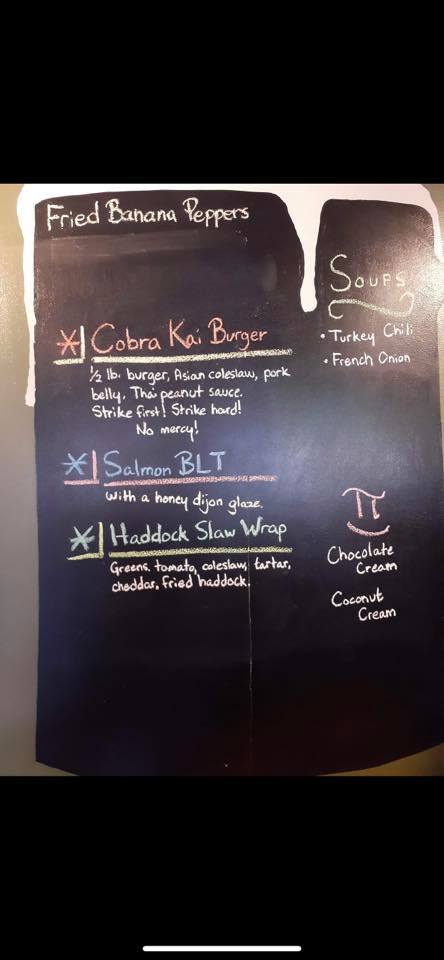 Fried Banana Peppers
* Cobra Kai Burger
1/2 lb. burger, Asian coleslaw, pork
belly, Thai peanut sauce.
Strike first! Strike hard!
No mercy!
* Salmon BLT
with a honey dijon glaze.
* Haddock Slaw Wrap
Greens, tomato, coleslaw, tartar,
cheddar, fried haddock.
Soups
• Turkey Chili
• French Onion
π
Chocolate
Cream
Coconut
Cream